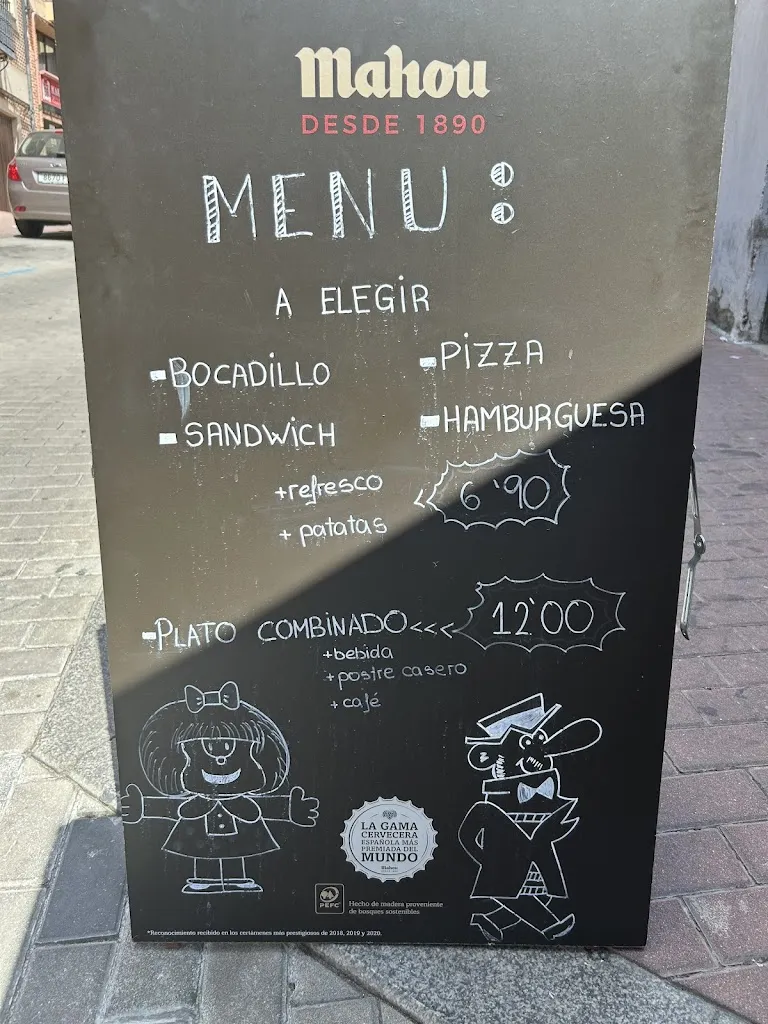 Mahou
DESDE 1890
MENU:
A ELEGIR
-BOCADILLO
-PIZZA
-SANDWICH
-HAMBURGUESA
+refresco
+ patatas
< 6'90
-PLATO COMBINADO<<< 12'00
+bebida
+postre casero
+ café
LA GAMA
CERVECERA
ESPAÑOLA MÁS
PREMIADA DEL
MUNDO
Mahou
PEFC
Hecho de madera proveniente
de bosques sostenibles
*Reconocimiento recibido en los certámenes más prestigiosos de 2018, 2019 y 2020.